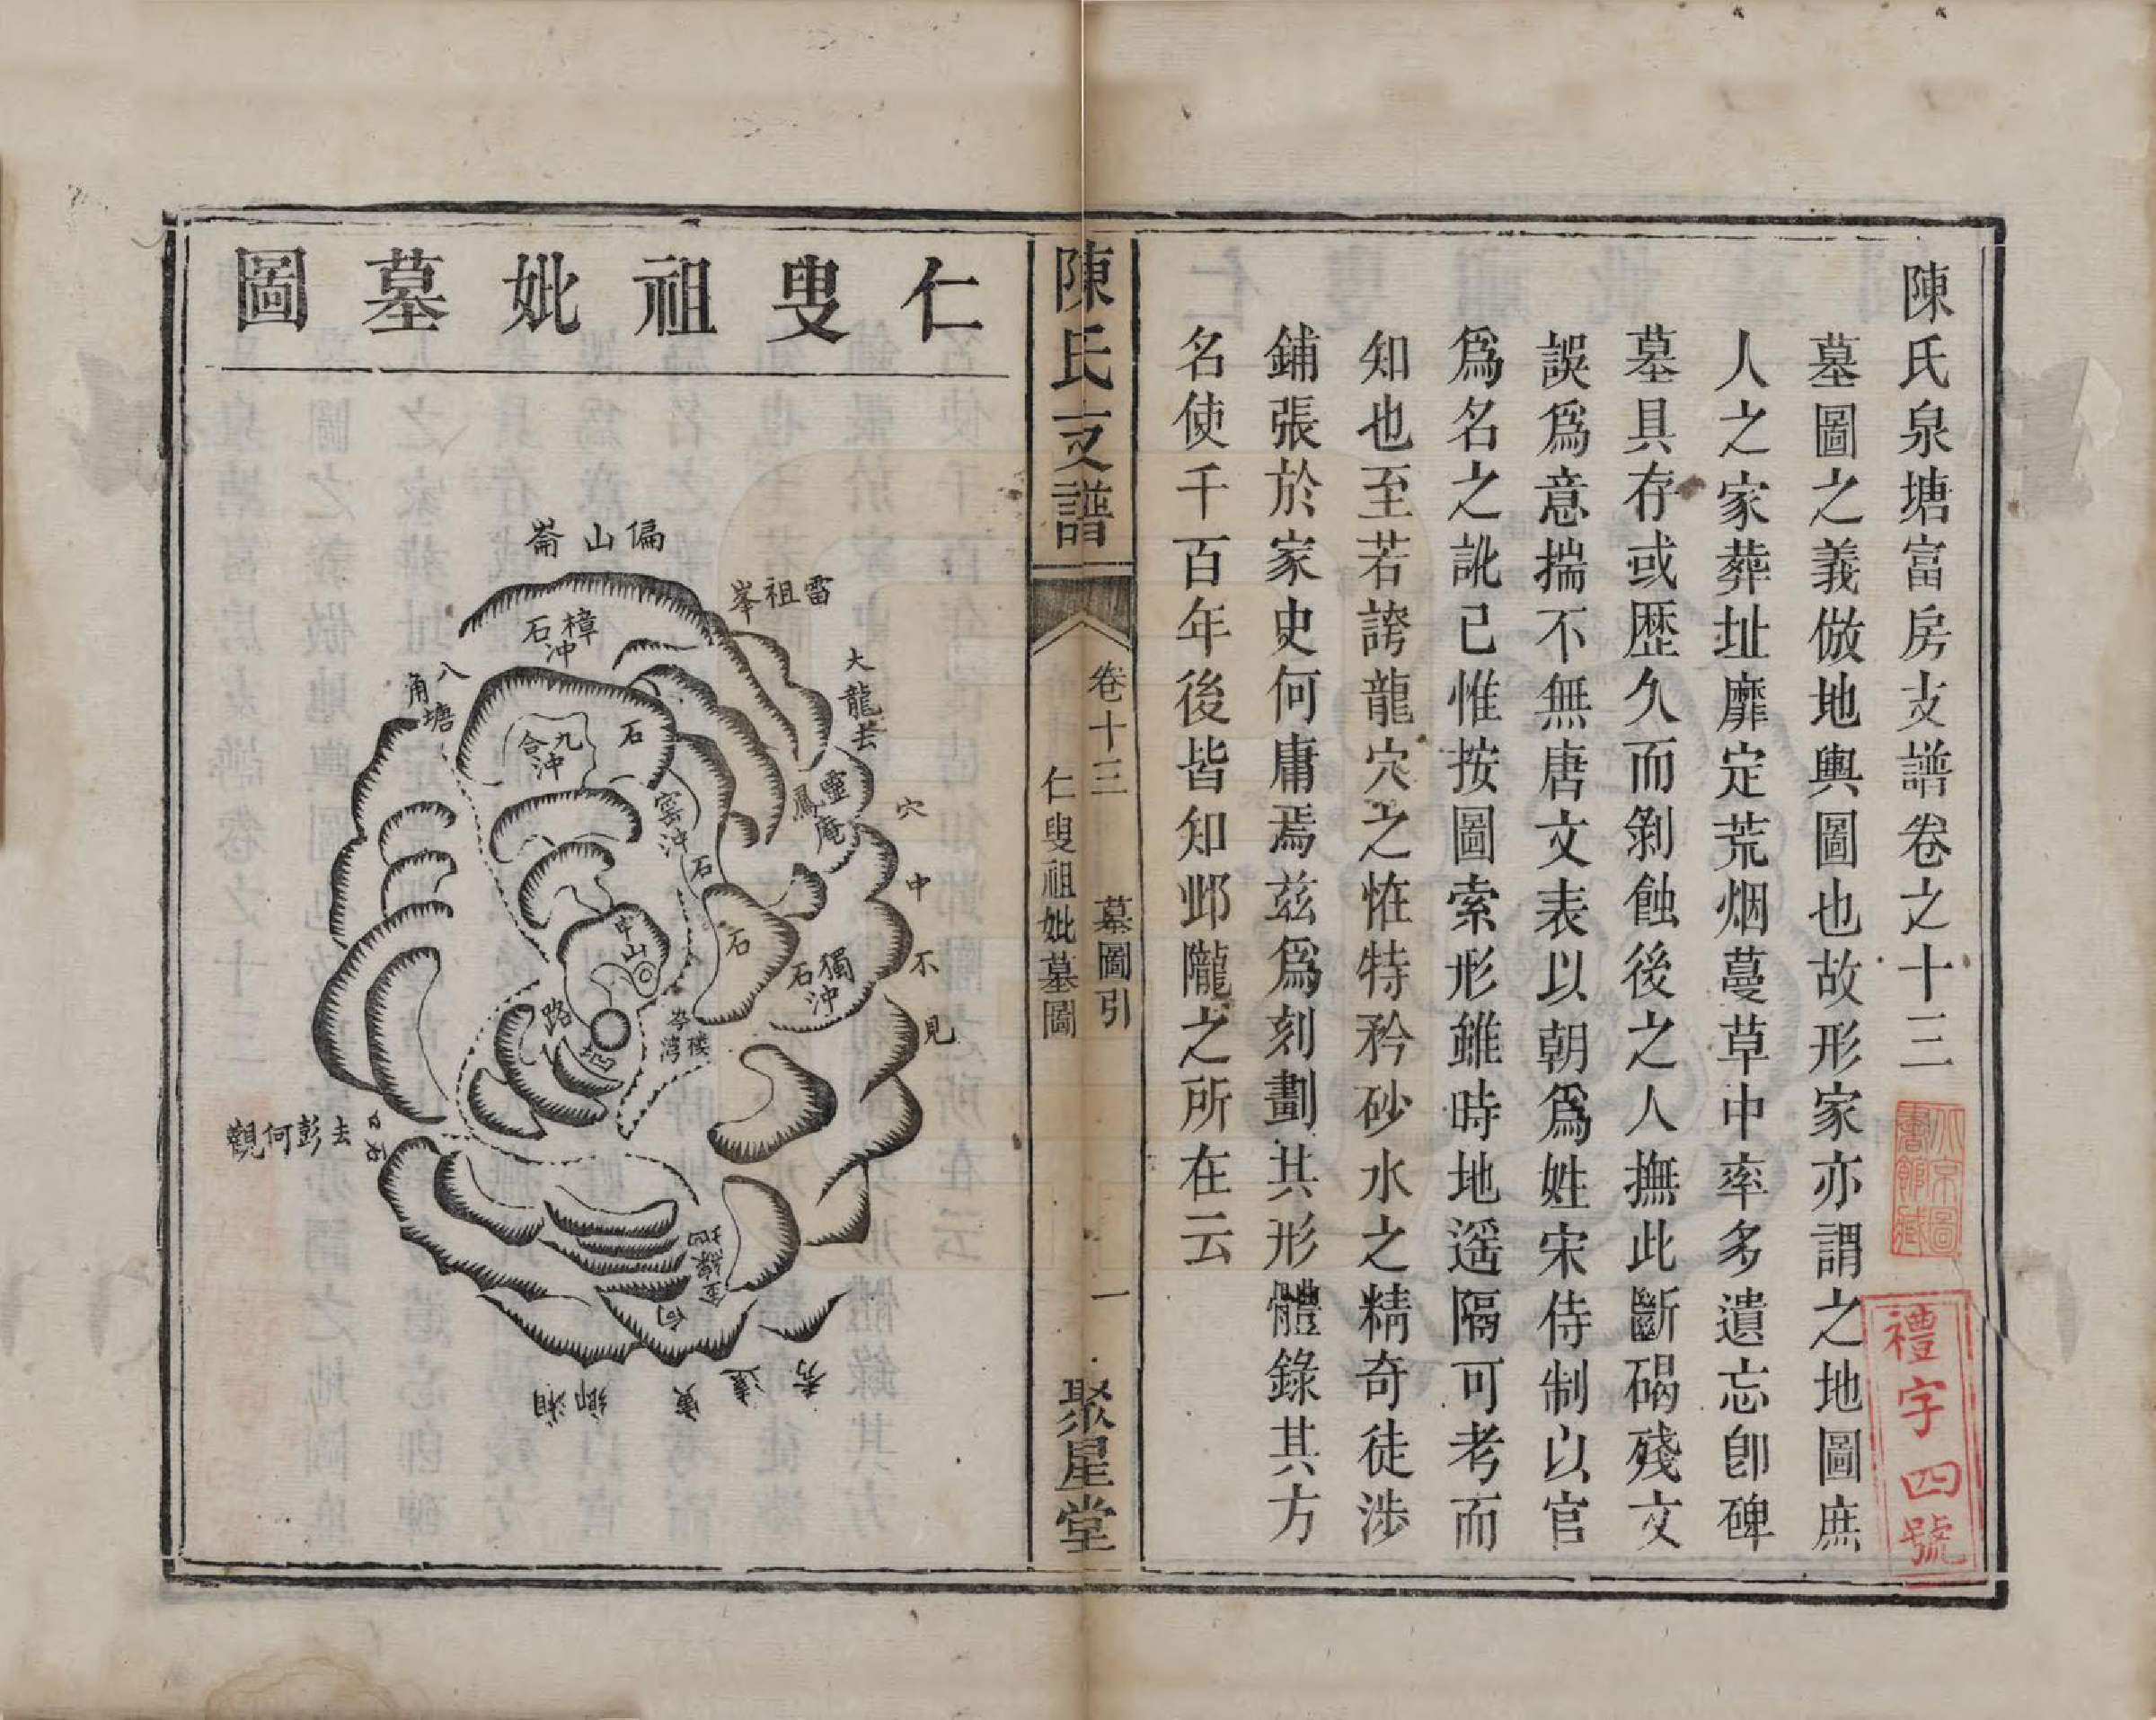 陳氏泉塘富房支譜卷之十三
墓圖之義倣地輿圖也故形家亦謂之地圖庶
人之家葬址靡定荒烟蔓草中率多遺忘卽碑
墓具存或歷久而剝蝕後之人撫此斷碣殘文
誤爲意揣不無唐文表以朝爲姓宋侍制以官
爲名之訛已惟按圖索形雖時地遥隔可考而
知也至若誇龍穴之恠特矜砂水之精奇徒涉
鋪張於家史何庸焉茲爲刻劃其形體錄其方
名使千百年後皆知邱隴之所在云
北京圖書館藏
禮字四號
陳氏支譜
卷十三
墓圖引
仁叟祖妣墓圖
一
聚星堂
仁叟祖妣墓圖
偏山崙
雷祖峯
大龍去
樟冲
石
八角塘
九合冲
石
窑冲
靈鳳庵
穴中不見
石
石
獨冲
石
中山
路
凹
去彭何觀
湘鄉